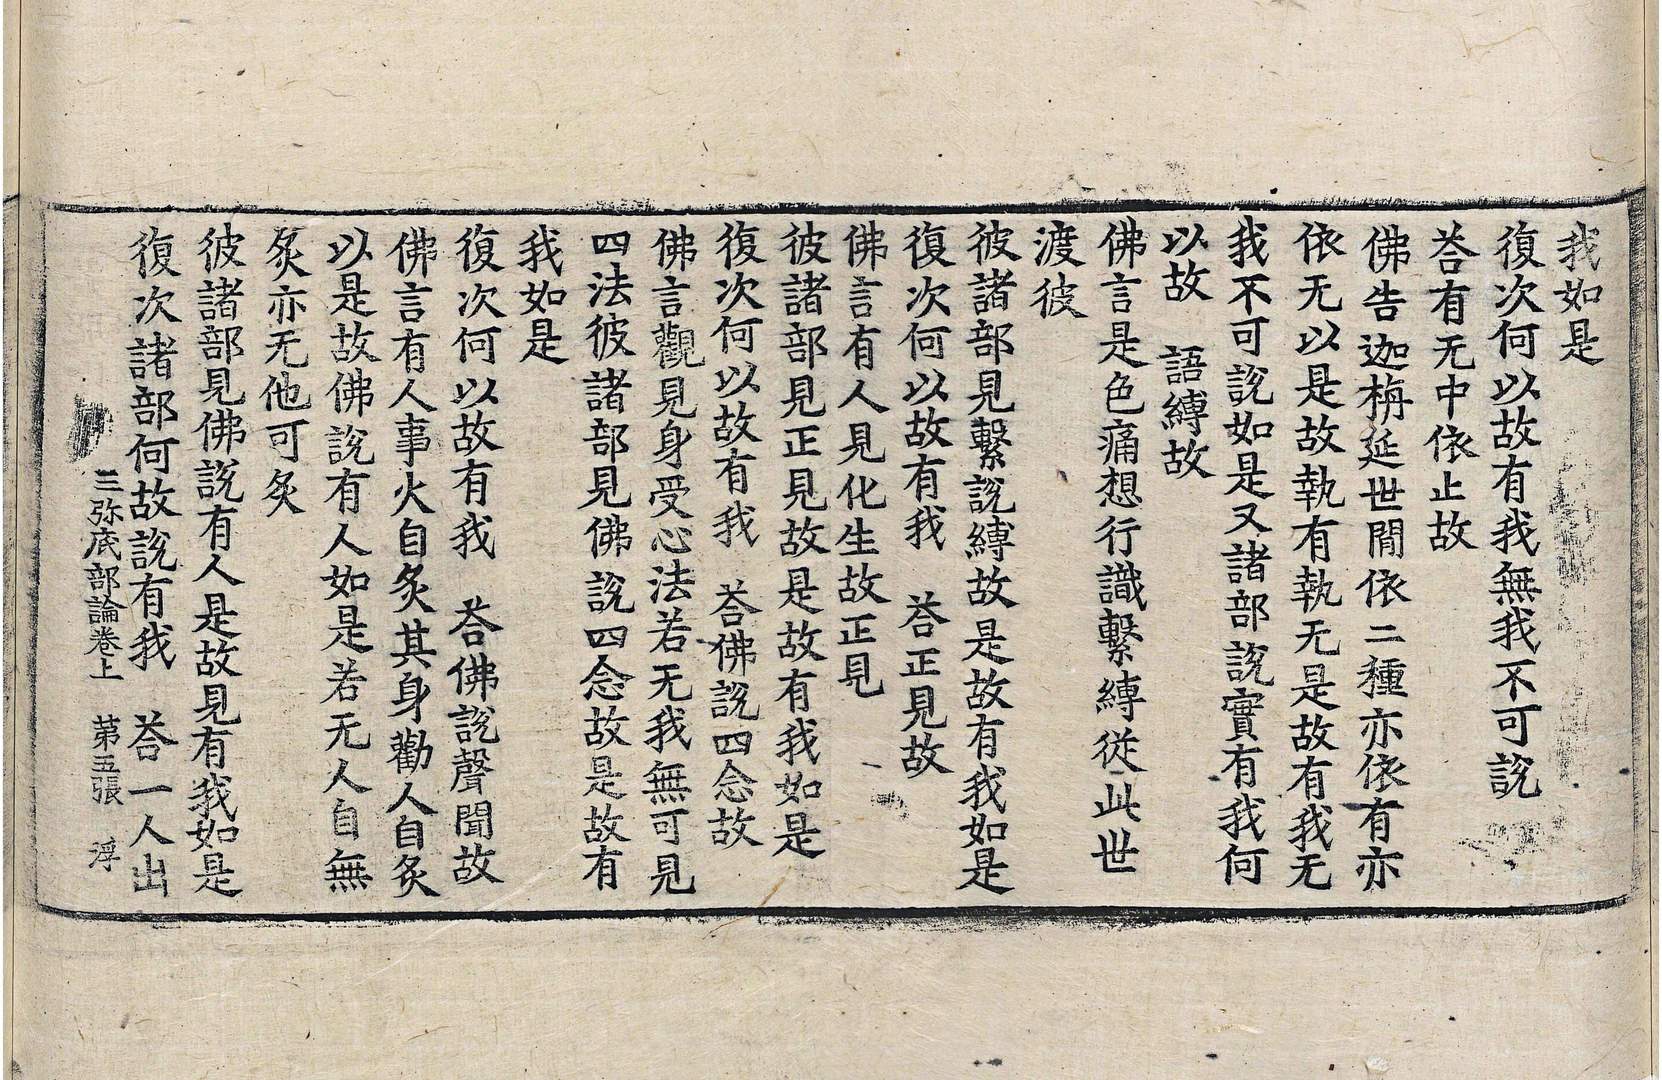 我如是
復次何以故有我無我不可說
荅有无中依止故
佛告迦栴延世間依二種亦依有亦
依无以是故執有執无是故有我无
我不可說如是又諸部說實有我何
以故 語縛故
佛言是色痛想行識繫縛從此世
渡彼
彼諸部見繫說縛故是故有我如是
復次何以故有我 荅正見故
佛言有人見化生故正見
彼諸部見正見故是故有我如是
復次何以故有我 荅佛說四念故
佛言觀見身受心法若无我無可見
四法彼諸部見佛說四念故是故有
我如是
復次何以故有我 荅佛說聲聞故
佛言有人事火自炙其身勸人自炙
以是故佛說有人如是若无人自無
炙亦无他可炙
彼諸部見佛說有人是故見有我如是
復次諸部何故說有我 荅一人出
三弥底部論卷上 苐五張 浮